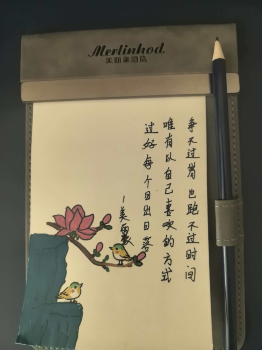 Merlinhod
美丽豪酒店
争天过省也跑不过时间
唯有以自己喜欢的方式
过好每个日出日落
—美丽豪